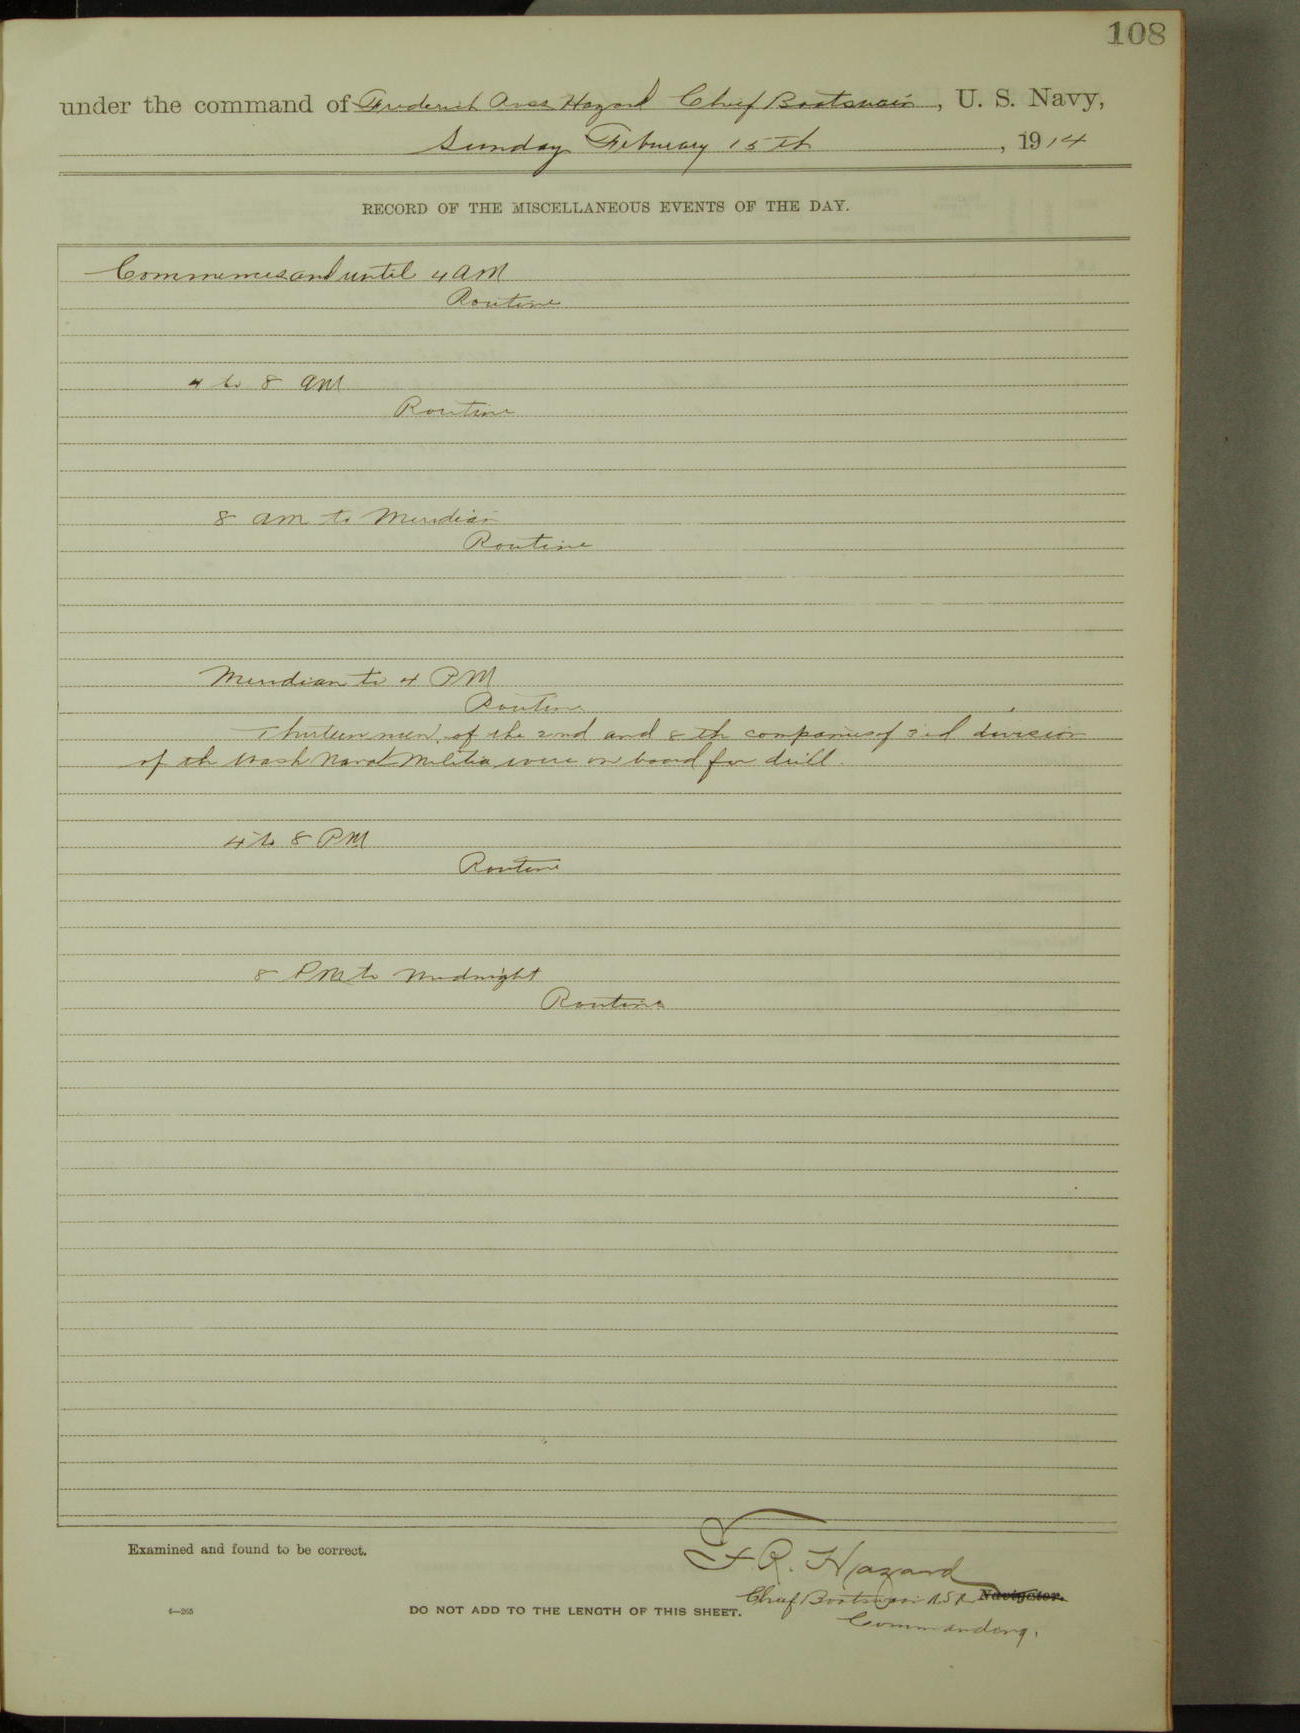 108
under the command of Frederick Ross Hazard Chief Boatswain, U. S. Navy,
Sunday February 15th, 1914
RECORD OF THE MISCELLANEOUS EVENTS OF THE DAY.
Commences and until 4 AM
Routine
4 to 8 AM
Routine
8 am to Meridian
Routine
Meridian to 4 PM
Routine
Thirteen men of the 2nd and 8th companies of 3rd division
of th Wash Naval Militia were on board for drill.
4 to 8 PM
Routine
8 PM to Midnight
Routine
F. R. Hazard
Examined and found to be correct.
Chief Boatswain Navigator.
6—265
DO NOT ADD TO THE LENGTH OF THIS SHEET.
Commanding.